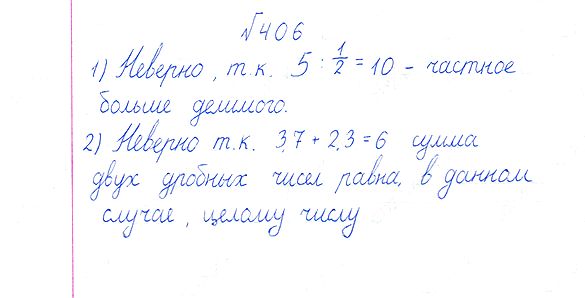 №406
1) Неверно, т.к. 5 : 1/2 = 10 - частное
больше делимого.
2) Неверно т.к. 3,7 + 2,3 = 6 сумма
двух дробных чисел равна, в данном
случае, целому числу